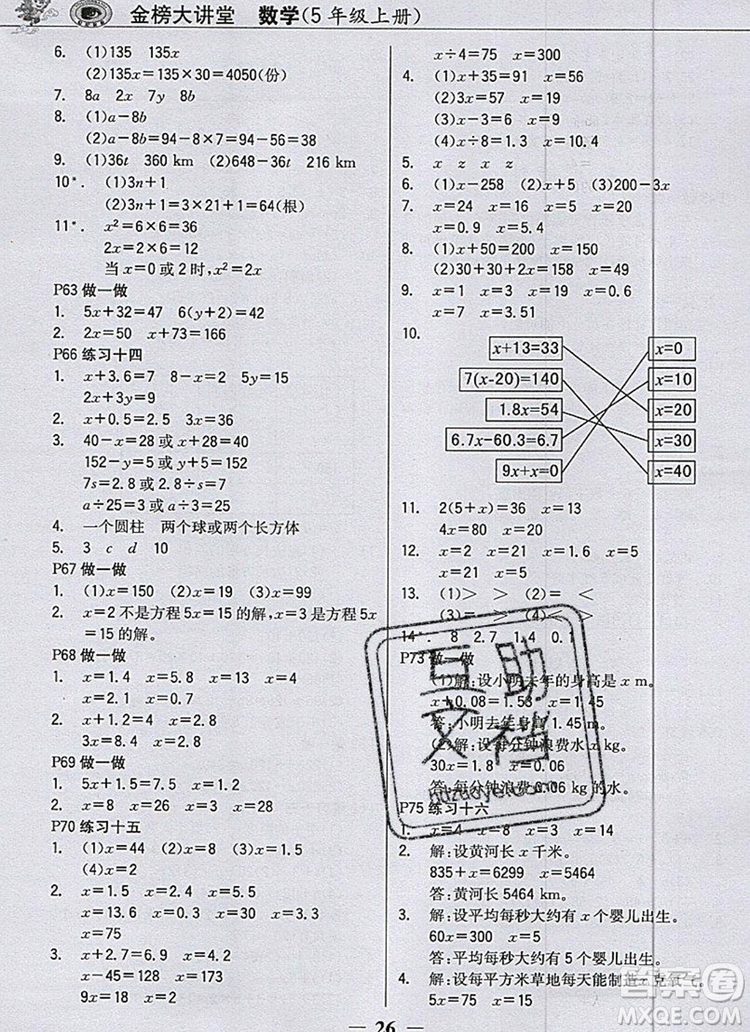 金榜大讲堂 数学(5年级上册)
6. (1)135 135x
(2)135x=135×30=4050(份)
7. 8a 2x 7y 8b
8. (1)a-8b
(2)a-8b=94-8×7=94-56=38
9. (1)36t 360 km (2)648-36t 216 km
10*. (1)3n+1
(2)3n+1=3×21+1=64(根)
11*. x²=6×6=36
2x=2×6=12
当x=0或2时,x²=2x
P63做一做
1. 5x+32=47 6(y+2)=42
2. 2x=50 x+73=166
P66练习十四
1. x+3.6=7 8-x=2
2x+3y=9
2. x+0.5=2.5 4x=2
3. 40-x=28或x+28=40
152-y=61或y+61=152
7s=2.8或2.8÷s=7
a÷25=3或a÷3=25
4. 一个圆柱 两个球或两个长方体
5. 3 c d 10
P67做一做
1. (1)x=150 (2)x=19 (3)x=99
2. x=2不是方程5x=15的解,x=3是方程5x
=15的解。
P68做一做
1. x=1.4 x=5.8 x=13
x=2.1 x=0.7
2. x=1.2 x=4 x=2.7
3x=8.4 x=2.8
P69做一做
1. 5x+1.5=4 x=0.5
2. x=8 x=26 x=3 x=28
P70练习十五
1. (1)x=44 (2)x=2 (3)x=6
(4)x=2
2. x=1.5 x=4.6 x=27
x=0.3 x=13 x=37
x=75
3. x+2.7=6.9 x=4.2
x-56=117 x=173
x÷4=75 x=300
4. (1)x+35=91 x=56
(2)3x=57 x=19
(3)x-3=6 x=9
(4)x÷8=1.3 x=10.4
5. x z x z
6. (1)x-258 (2)x+5 (3)200-3x
7. x=24 x=16 x=15
x=0.9 x=5.4
8. (1)x+50=200 x=150
(2)30+30+2x=158 x=49
9. x=31 x=19 x=0.6
x=7 x=3.51
10.
x+13=33 x=0
7(x-20)=140 x=10
1.8x=54 x=20
6.7x-60.3=6.7 x=30
9x+x=0 x=40
11. 2(5+x)=36 x=13
4x=80 x=20
12. x=2 x=21 x=1.6
x=21 x=1.3 x=5
13. (1)> > (2)= <
(3)= > (4)< <
14*. 8 2.7 1.4 0.1
P73做一做
(1)解:设小明去年的身高是x m。
x+0.08=1.53 x=1.45
答:小明去年身高1.45 m。
(2)解:设每分钟浪费水x kg。
30x=1.8 x=0.06
答:每分钟浪费0.06 kg的水。
P75练习十六
1. x=4 x=8 x=13
2. 解:设黄河长x千米。
835+x=6299 x=5464
答:黄河长5464 km。
3. 解:设平均每秒大约有x个婴儿出生。
60x=300 x=5
答:平均每秒大约有5个婴儿出生。
4. 解:设每平方米草地每天能制造x克氧气。
5x=75 x=15
26
互助
文档
huzuoye.com
答案圈
MXQE.COM